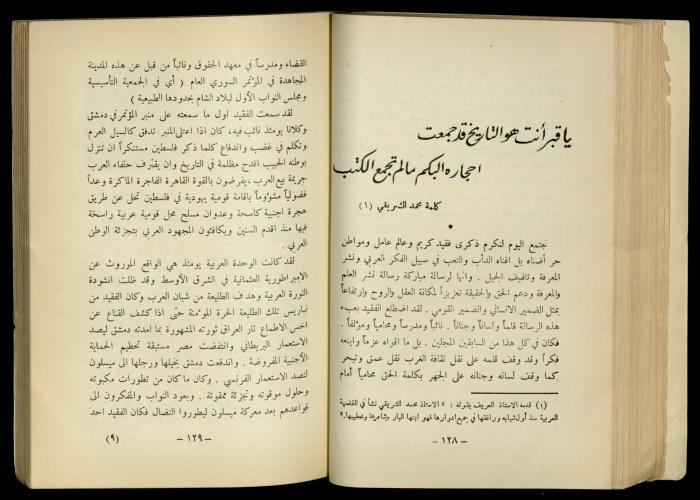 يا قبر أنت هو التاريخ قد جمعت
احجاره البكم مالم تجمع الكتب
كلمة محمد الشريقي (١)
نجتمع اليوم لنكرم ذكرى فقيد كريم وعالم عامل ومواطن
حر أضناه بل افناه الدأب والتعب في سبيل الفكر العربي ونشر
المعرفة وتثقيف الجيل . وانها لرسالة مباركة رسالة نشر العلم
والمعرفة ودعم الحق والحقيقة تعزيزاً لمكانة العقل والروح وارتفاعاً
بمثل الضمير الانساني والضمير القومي . لقد اضطلع الفقيد بعبء
هذه الرسالة قلماً ولساناً وجناناً . نائباً ومدرساً ومحامياً ومؤلفاً .
فكان في كل هذا من السابقين المجلين . بل ما اقواه عزماً واينعه
فكراً وقد وقف قلمه على نقل ثقافة الغرب نقل عمق وتبحر
كما وقف لسانه وجنانه على الجهر بكلمة الحق محامياً أمام
(١) قدمه الاستاذ العريف بقوله : « الاستاذ محمد الشريقي نشأ في القضية
العربية منذ أول شبابه ورافقها في جميع ادوارها فهو ابنها البار وشاعرها وخطيبها.»
- ١٢٨ -
القضاء ومدرساً في معهد الحقوق ونائباً من قبل عن هذه المدينة
المجاهدة في المؤتمر السوري العام ( أي في الجمعية التأسيسية
ومجلس النواب الأول لبلاد الشام بحدودها الطبيعية )
لقد سمعت الفقيد اول ما سمعته على منبر المؤتمر في دمشق
وكلانا يومئذ نائب فيه، كان اذا اعتلى المنبر تدفق كالسيل العرم
وتكلم في غضب واندفاع كلما ذكر فلسطين مستنكراً ان تنزل
بوطنه الحبيب افدح مظلمة في التاريخ وان يقترف حلفاء العرب
جريمة بيع العرب، يفرضون بالقوة القاهرة الفاجرة الماكرة وعداً
فضولياً مشؤوماً باقامة قومية يهودية في فلسطين تحل عن طريق
هجرة اجنبية كاسحة وعدوان مسلح محل قومية عربية راسخة
فيها منذ اقدم السنين ويكافئون المجهود العربي بتجزئة الوطن
العربي .
لقد كانت الوحدة العربية يومئذ هي الواقع الموروث عن
الامبراطورية العثمانية في الشرق الأوسط وقد ظلت انشودة
الثورة العربية وهدف الطليعة من شبان العرب وكان الفقيد من
نباريس تلك الطليعة الحرة المؤمنة حتى اذا كشف القناع عن
اخس الاطماع ثار العراق ثورته المشهورة بما امدته دمشق ليصد
الاستعمار البريطاني وانتفضت مصر مستبقة تحطيم الحماية
الأجنبية المفروضة . واندفعت دمشق بخيلها ورجلها الى ميسلون
لتصد الاستعمار الفرنسي . وكان ما كان من تطورات مكبوته
وحلول موقوته وتجزئة ممقوتة . وبعود النواب والمفكرون الى
قواعدهم بعد معركة ميسلون ليطوروا النضال فكان الفقيد احد
- ١٢٩ -
(٩)